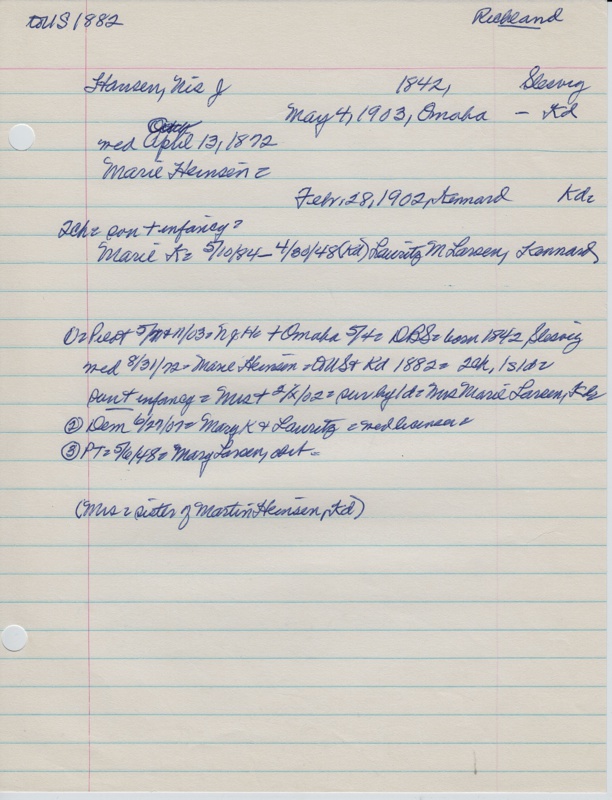 to US 1882
Richland
Hansen, Nis J 1842, Slesvig
May 4, 1903, Omaha - Kd
med April 13, 1872
Marie Heinsen =
Febr. 28, 1902, Kennard Kd=
2ch= son + infancy=
Marie K= 5/10/84 - 4/30/48 (Kd) Lauritz M Larsen, Kennard,
① = Pilot 5/ /03= N J H + Omaha 5/4= DBS= born 1842 Slesvig
med 8/31/72= Marie Heinsen = to US + Kd 1882= 2ch, 1s1d=
sun + infancy= Mrs + 2/ /02= surv by 1d= Mrs Marie Larsen, Kd=
② Dem 6/27/07= Mary K & Lauritz = med license =
③ PT= 5/6/48= Mary Larsen, obit =
(Mrs = sister of Martin Heinsen, Kd)